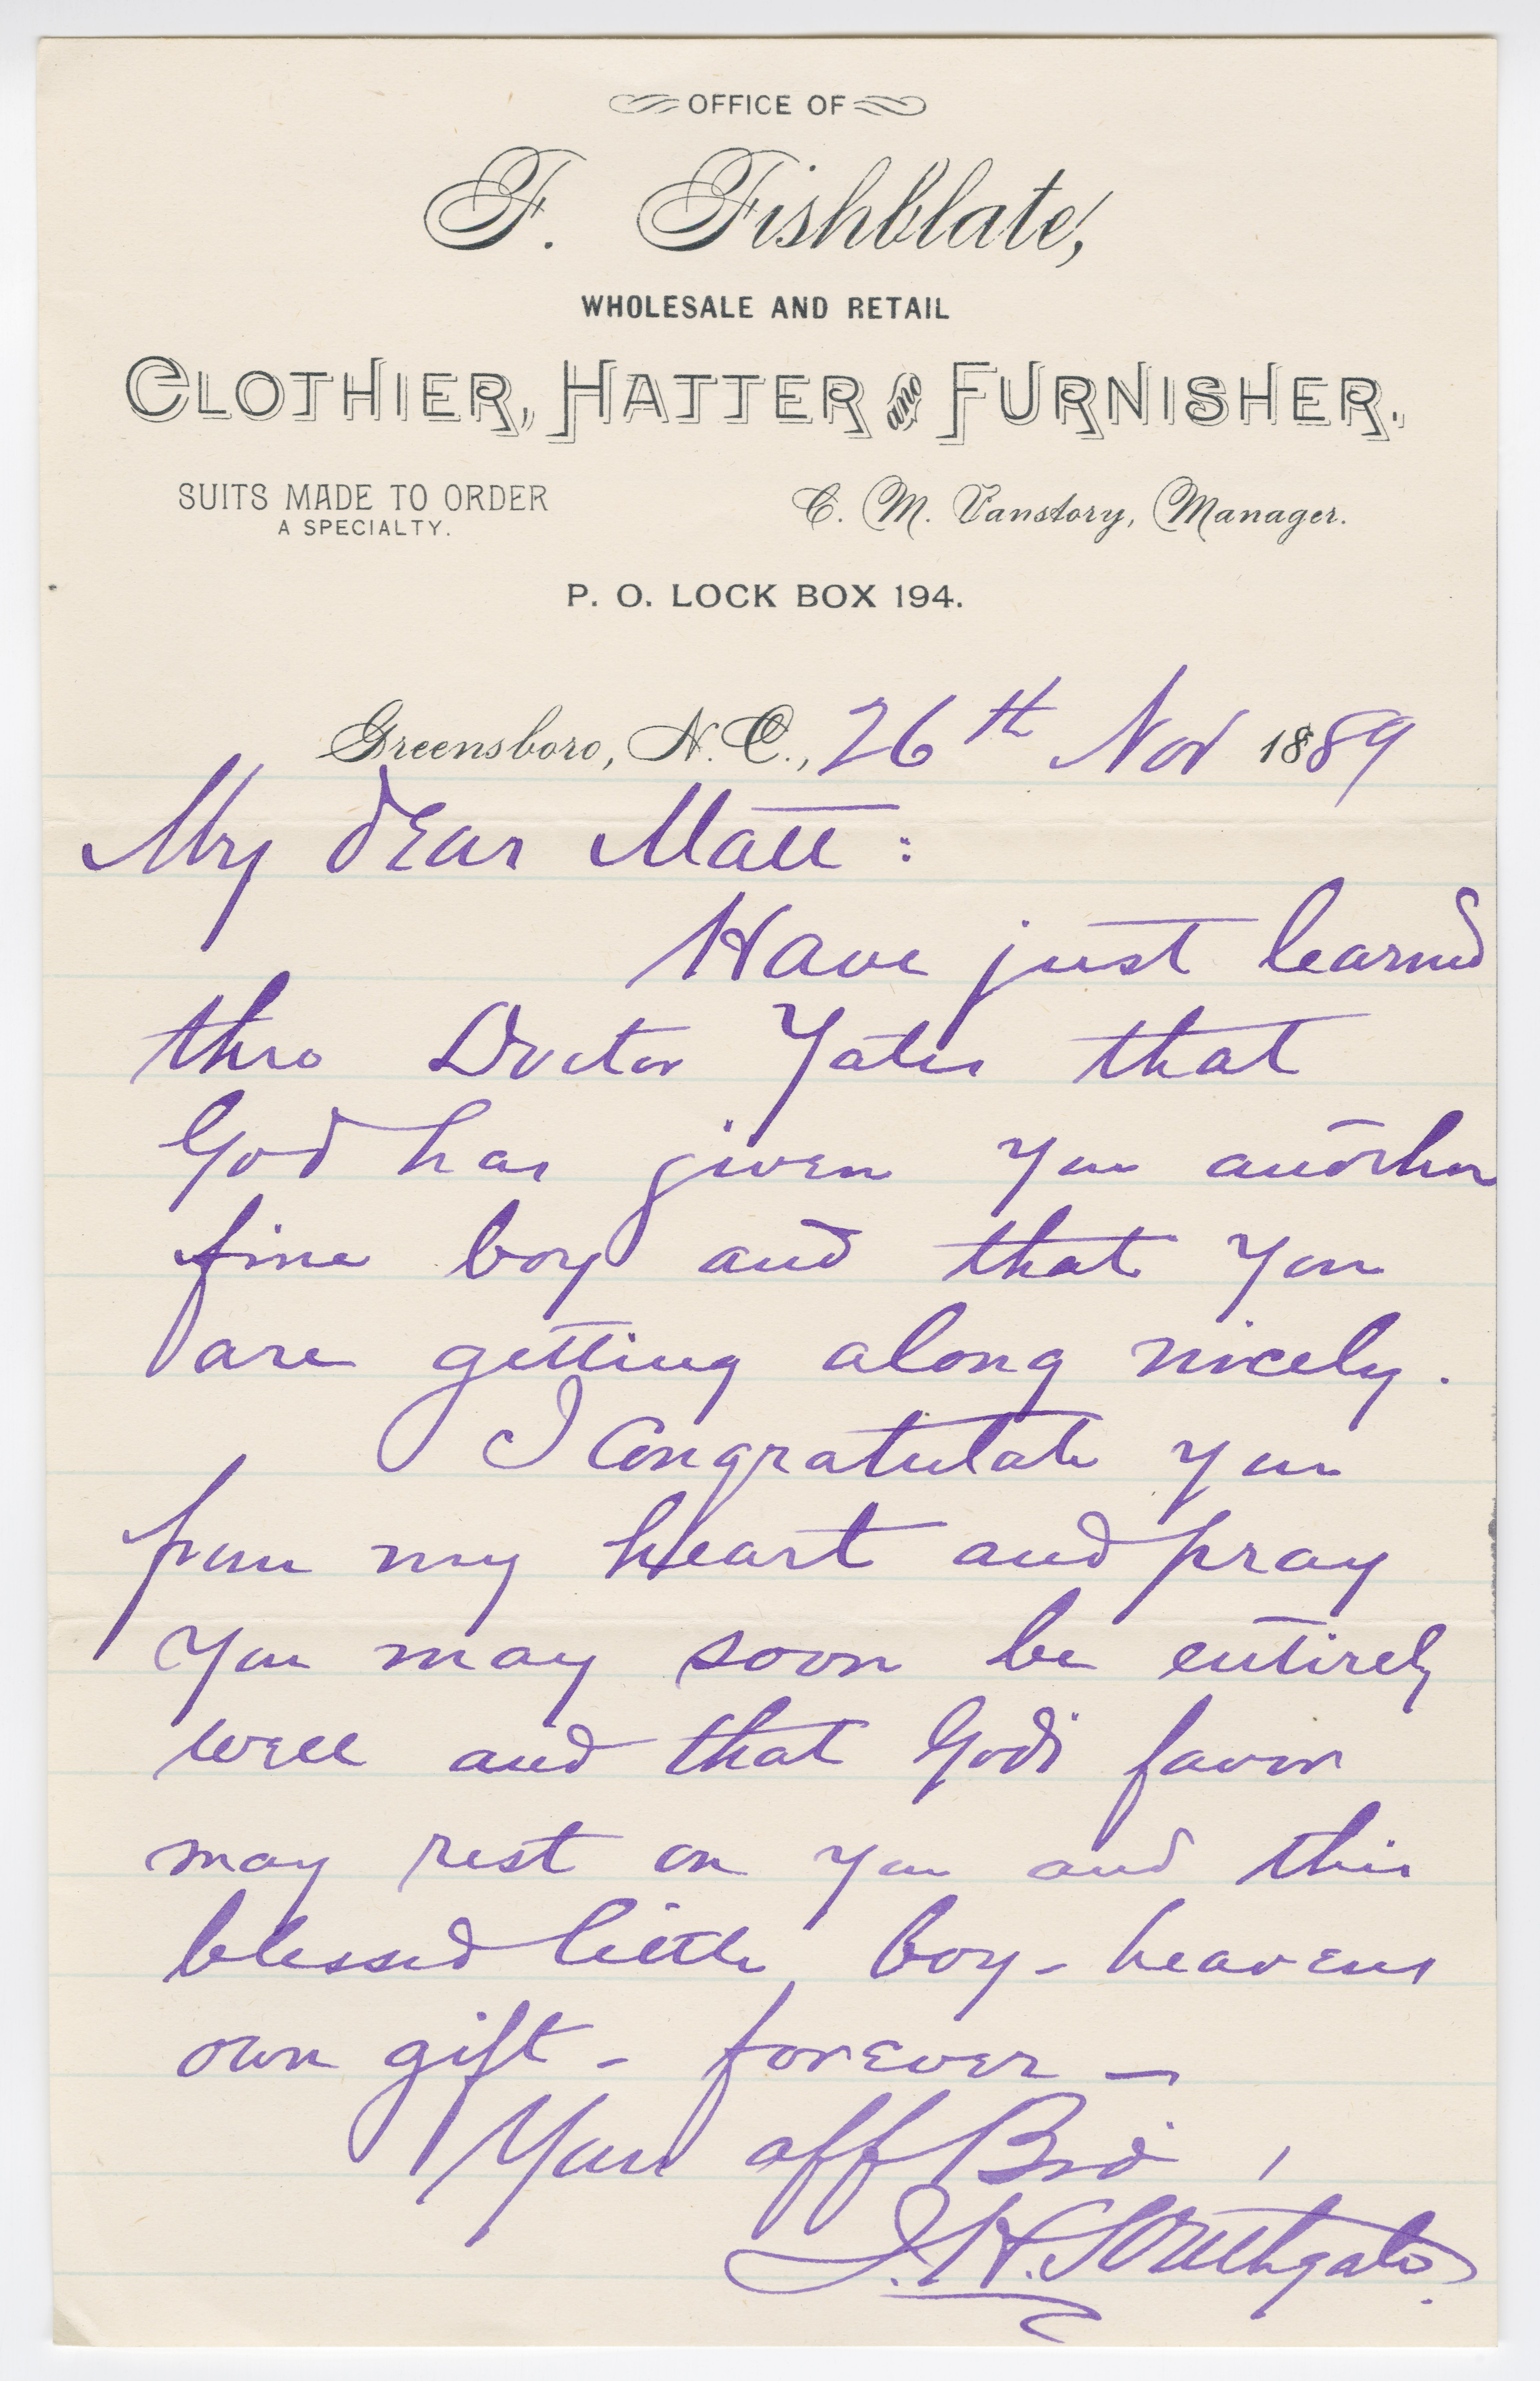 OFFICE OF
F. Fishblate,
WHOLESALE AND RETAIL
CLOTHIER, HATTER and FURNISHER.
SUITS MADE TO ORDER
A SPECIALTY.
C. M. Vanstory, Manager.
P. O. LOCK BOX 194.
Greensboro, N. C., 26th Nov 1889
My dear Matt:
Have just learned
thro Doctor Yates that
God has given you another
fine boy and that you
are getting along nicely.
I congratulate you
from my heart and pray
you may soon be entirely
well and that God's favor
may rest on you and this
blessed little boy - heavens
own gift - forever -
Your aff Bro,
J. H. Southgate.